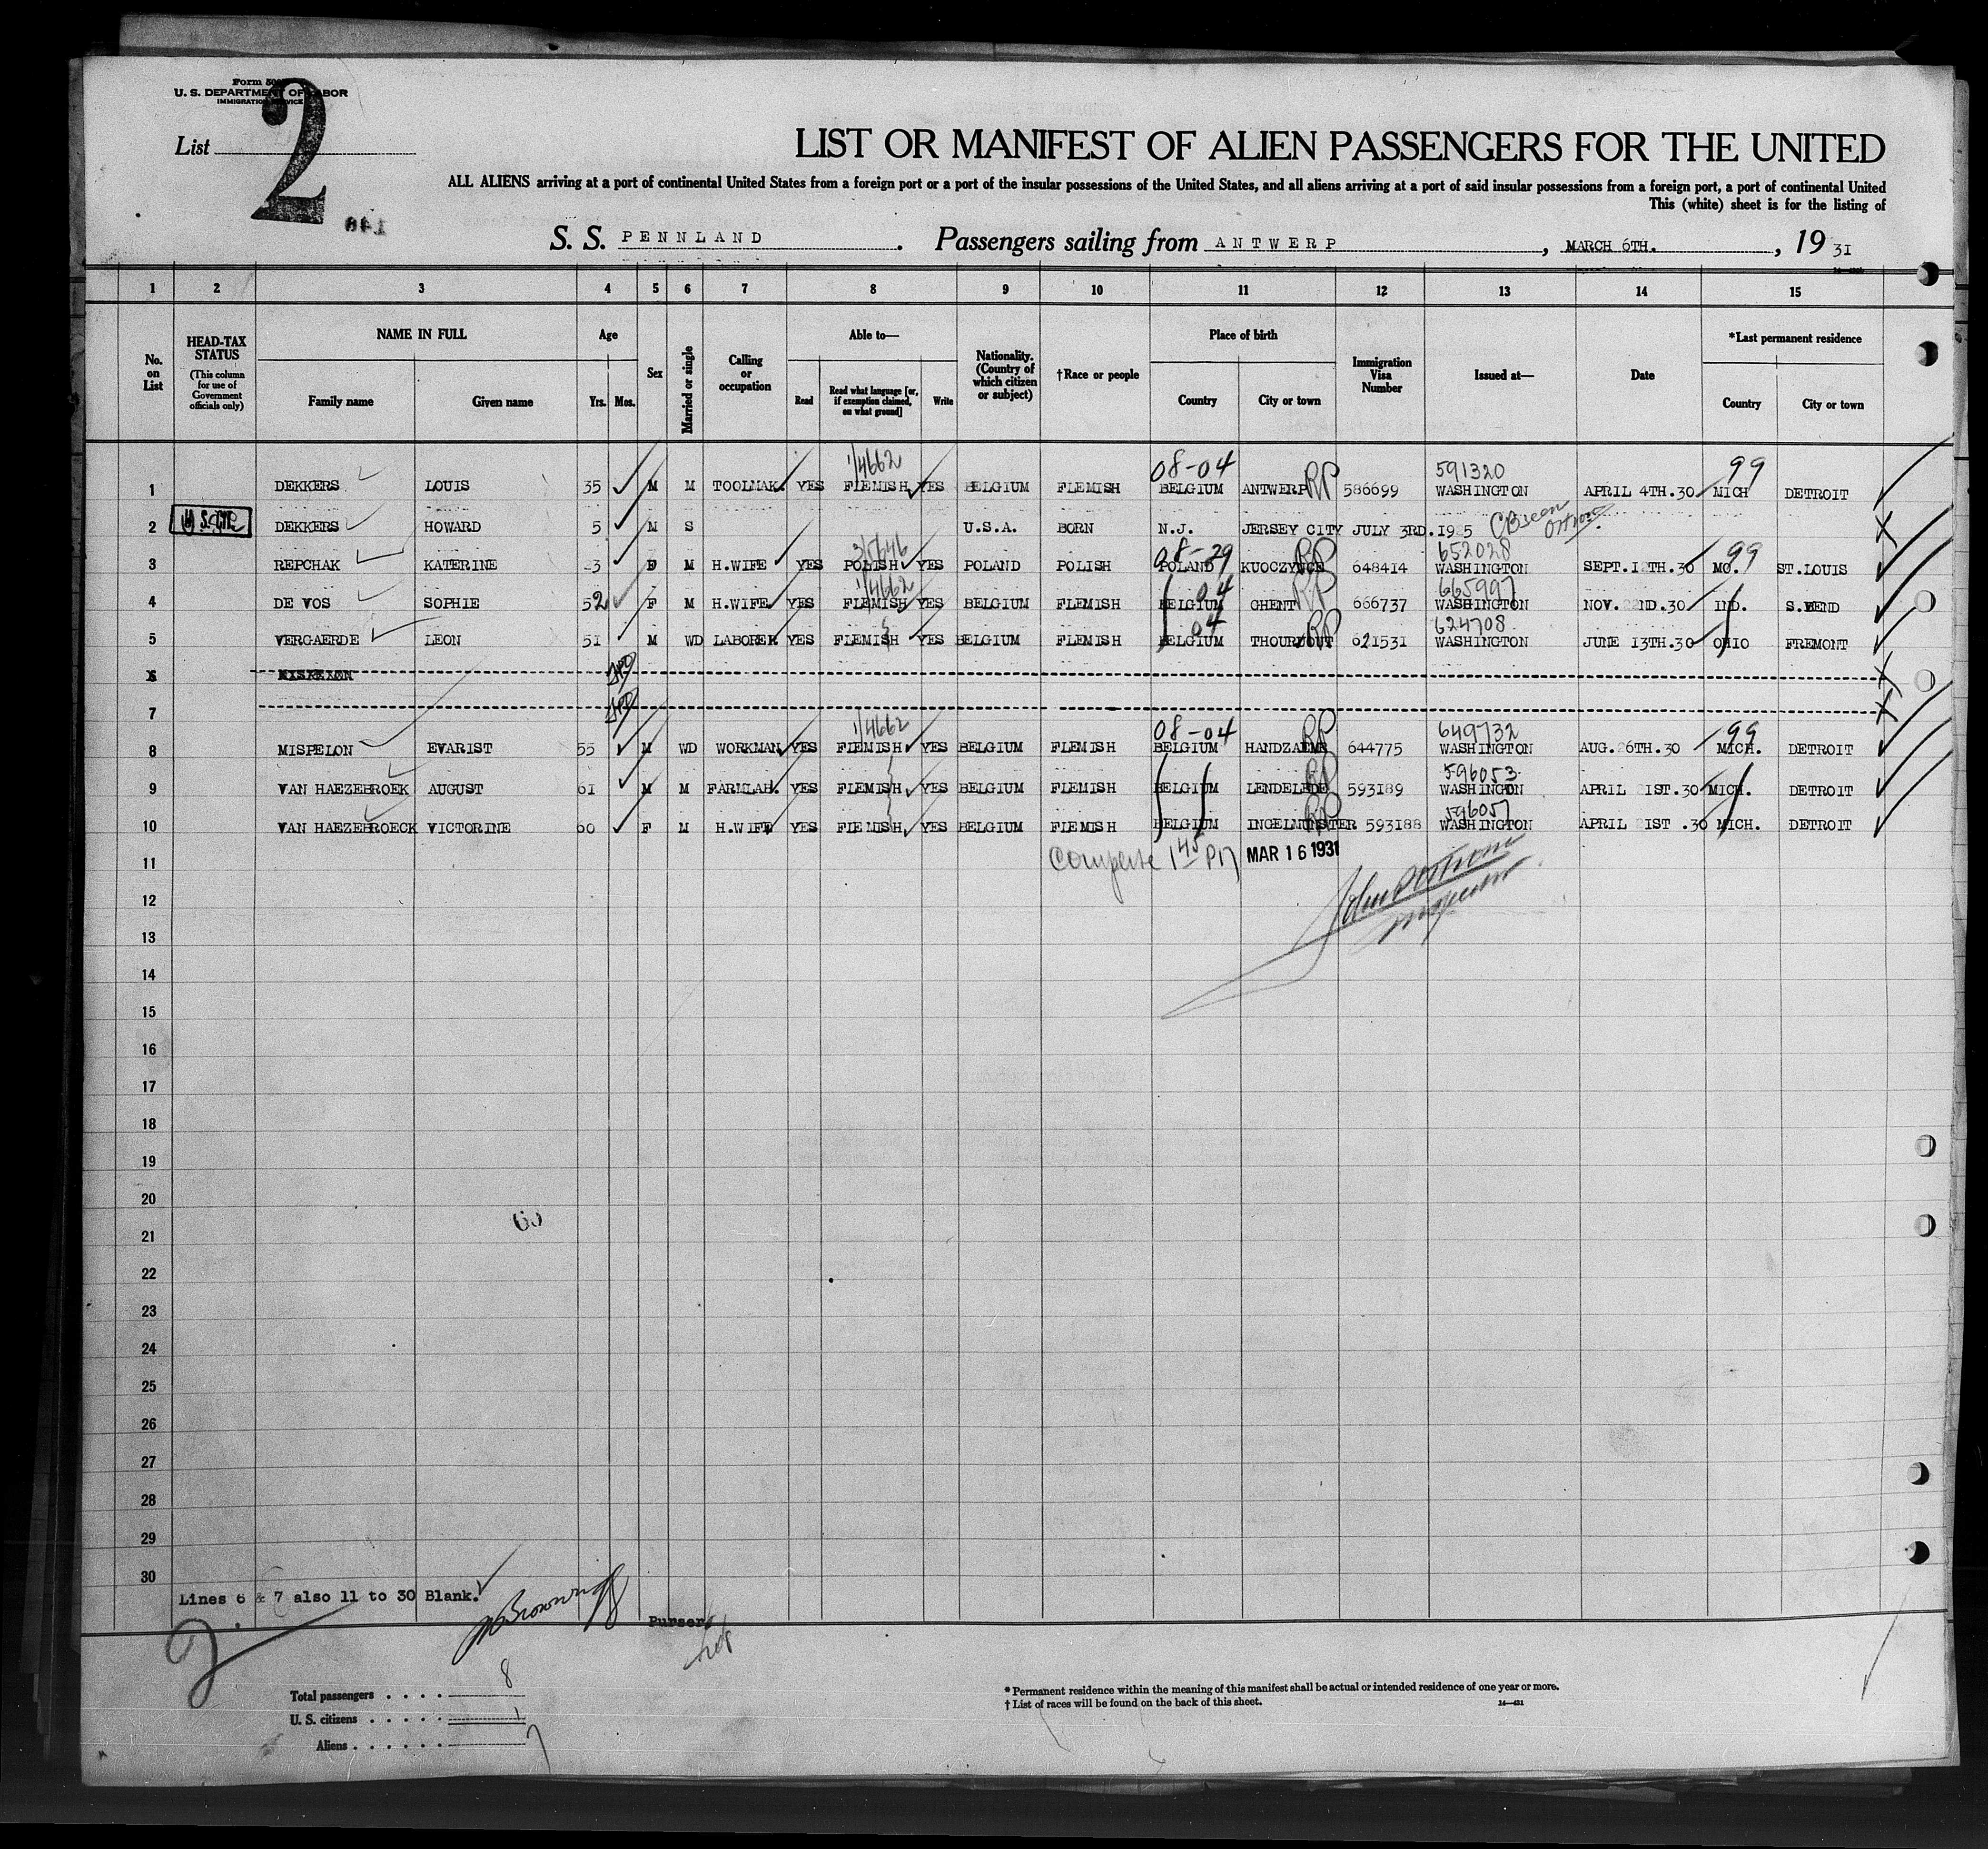 Form 500
U. S. DEPARTMENT OF LABOR
IMMIGRATION SERVICE
2
List
LIST OR MANIFEST OF ALIEN PASSENGERS FOR THE UNITED
ALL ALIENS arriving at a port of continental United States from a foreign port or a port of the insular possessions of the United States, and all aliens arriving at a port of said insular possessions from a foreign port, a port of continental United
This (white) sheet is for the listing of
S. S. PENNLAND. Passengers sailing from ANTWERP, MARCH 6TH., 19 31
1 2 3 4 5 6 7 8 9 10 11 12 13 14 15
No. on List
HEAD-TAX STATUS (This column for use of Government officials only)
NAME IN FULL
Family name Given name
Age
Yrs. Mos.
Sex
Married or single
Calling or occupation
Able to—
Read Read what language [or, if exemption claimed, on what ground] Write
Nationality. (Country of which citizen or subject)
†Race or people
Place of birth
Country City or town
Immigration Visa Number
Issued at—
Date
*Last permanent residence
Country City or town
1/4662 08-04 591320 99
1 DEKKERS LOUIS 35 M M TOOLMAK. YES FLEMISH YES BELGIUM FLEMISH BELGIUM ANTWERP RP 586699 WASHINGTON APRIL 4TH.30 MICH DETROIT
2 DEKKERS HOWARD 5 M S U.S.A. BORN N.J. JERSEY CITY JULY 3RD.19 5
3/5646 08-29 RP 652028 99
3 REPCHAK KATERINE 3 F M H.WIFE YES POLISH YES POLAND POLISH POLAND 648414 WASHINGTON SEPT.12TH.30 MO. ST.LOUIS
1/4662 04 RP 665997
4 DE VOS SOPHIE 52 F M H.WIFE YES FLEMISH YES BELGIUM FLEMISH BELGIUM GHENT 666737 WASHINGTON NOV. 22ND.30 IND. S.BEND
04 RP 624708
5 VERGAERDE LEON 51 M WD LABORER YES FLEMISH YES BELGIUM FLEMISH BELGIUM THOURHOUT 621531 WASHINGTON JUNE 13TH.30 OHIO FREMONT
6
7
1/4662 08-04 RP 649732 99
8 MISPELON EVARIST 55 M WD WORKMAN YES FLEMISH YES BELGIUM FLEMISH BELGIUM HANDZAEME 644775 WASHINGTON AUG. 26TH.30 MICH. DETROIT
RP 596053
9 VAN HAEZEBROEK AUGUST 61 M M FARMLAB. YES FLEMISH YES BELGIUM FLEMISH BELGIUM LENDELEDE 593189 WASHINGTON APRIL 21ST.30 MICH. DETROIT
RP 596057
10 VAN HAEZEBROECK VICTORINE 60 F M H.WIFE YES FLEMISH YES BELGIUM FLEMISH BELGIUM INGELMUNSTER 593188 WASHINGTON APRIL 21ST .30 MICH. DETROIT
11 Complete 1 45 PM MAR 16 1931
12
Inspector
13
14
15
16
17
18
19
20
21
22
23
24
25
26
27
28
29
30
Lines 6 & 7 also 11 to 30 Blank.
Purser
2
Total passengers . . . . 8
U. S. citizens . . . . . 1
Aliens . . . . . . 7
* Permanent residence within the meaning of this manifest shall be actual or intended residence of one year or more.
† List of races will be found on the back of this sheet.